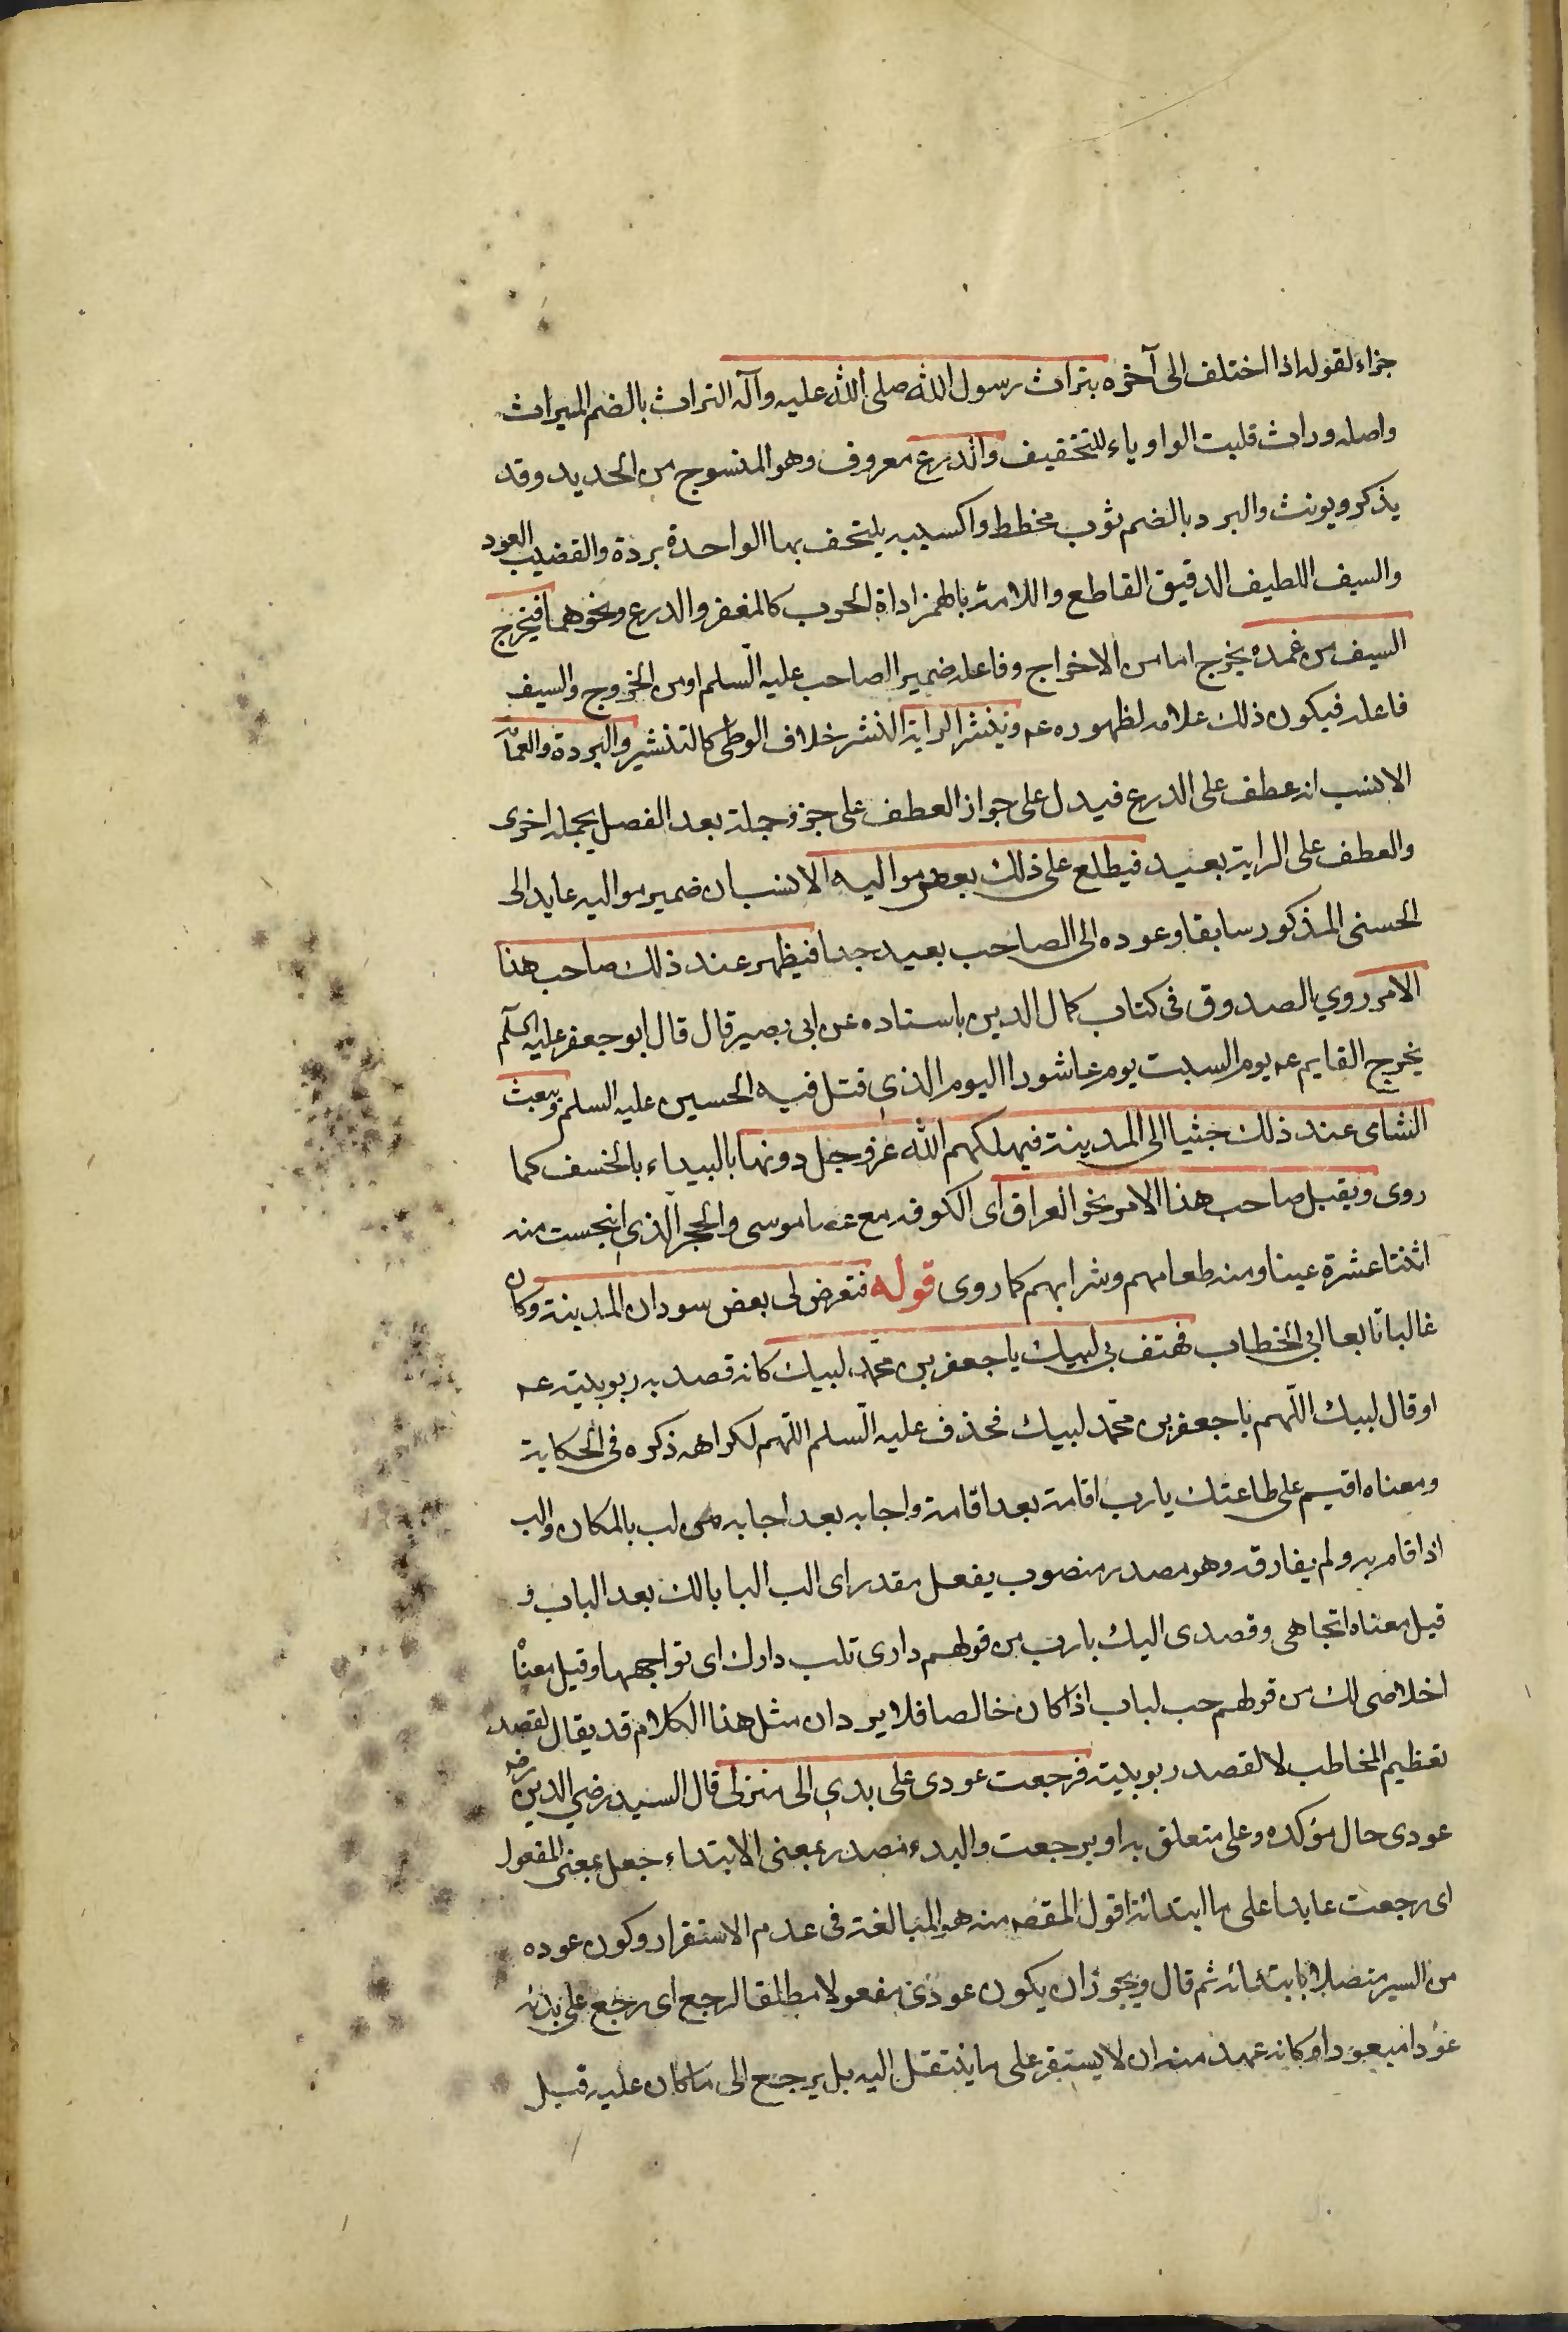 جزاء لقوله اذا اختلف الى آخره بتراث رسول الله صلى الله عليه وآله التراث بالضم الميراث
واصله وراث قلبت الواو ياء للتخفيف والدرع معروف وهو المنسوج من الحديد وقد
يذكر ويونث والبرد بالضم ثوب مخطط واكسيه يلتحف بها الواحدة بردة والقضيب العود
والسيف اللطيف الدقيق القاطع واللامة بالهمز اداة الحرب كالمغفر والدرع ونحوهما فيخرج
السيف من غمده يخرج اما من الاخراج وفاعله ضمير الصاحب عليه السلم او من الخروج والسيف
فاعله فيكون ذلك علامه لظهوره عم وينشر الراية النشر خلاف الوطى كالتنشير والبردة والعمامة
الانسب انه عطف على الدرع فيدل على جواز العطف على جزؤ جملة بعد الفصل بجملة اخرى
والعطف على الراية بعيد فيطلع على ذلك بعض مواليه الانسب ان ضمير مواليه عايد الى
الحسنى المذكور سابقا وعوده الى الصاحب بعيد جدا فيظهر عند ذلك صاحب هذا
الامر روي الصدوق فى كتاب كمال الدين باسناده عن ابى بصير قال قال ابو جعفر عليه السلم
يخرج القايم عم يوم السبت يوم عاشورا اليوم الذي قتل فيه الحسين عليه السلم ويبعث
الشامى عند ذلك جثيا الى المدينة فيهلكهم الله عز وجل دونها بالبيداء بالخسف كما
روى ويقبل صاحب هذا الامر نحو العراق اى الكوفه مع عصا موسى والحجر الذي انبجست منه
اثنتا عشرة عينا ومنه طعامهم وشرابهم كما روى قوله فتعرض لى بعض سودان المدينة وكان
غالبا تابعا لابى الخطاب فهتف بى لبيك يا جعفر بن محمد لبيك كانه قصد به ربوبيته عم
او قال لبيك اللهم يا جعفر بن محمد لبيك فحذف عليه السلم اللهم لكراهه ذكره فى الحكاية
ومعناه اقيم على طاعتك يا رب اقامة بعد اقامة واجابه بعد اجابه من لب بالمكان والب
اذا اقام به ولم يفارقه وهو مصدر منصوب بفعل مقدر اى الب البابا لك بعد الباب و
قيل معناه اتجاهى وقصدى اليك يا رب من قولهم دارى تلب دارك اى تواجهها وقيل معناه
اخلاصى لك من قولهم حب لباب اذا كان خالصا فلا يرد ان مثل هذا الكلام قد يقال لقصد
تعظيم المخاطب لا لقصد ربوبيته فرجعت عودى على بدى الى منزلى قال السيد رضي الدين رضه
عودى حال مؤكده وعلى متعلق به او برجعت والبدء مصدر بمعنى الابتداء جعل بمعنى المفعول
اى رجعت عايدا على ما ابتدائه اقول المقصه منه هو المبالغة فى عدم الاستقرار وكون عوده
من السير متصلا بابتدائه ثم قال ويجوز ان يكون عودى مفعولا مطلقا لرجع اى رجع على بدئه
عوده المعهود او كانه عهد منه ان لا يستقر على ما ينتقل اليه بل يرجع الى ما كان عليه قبل